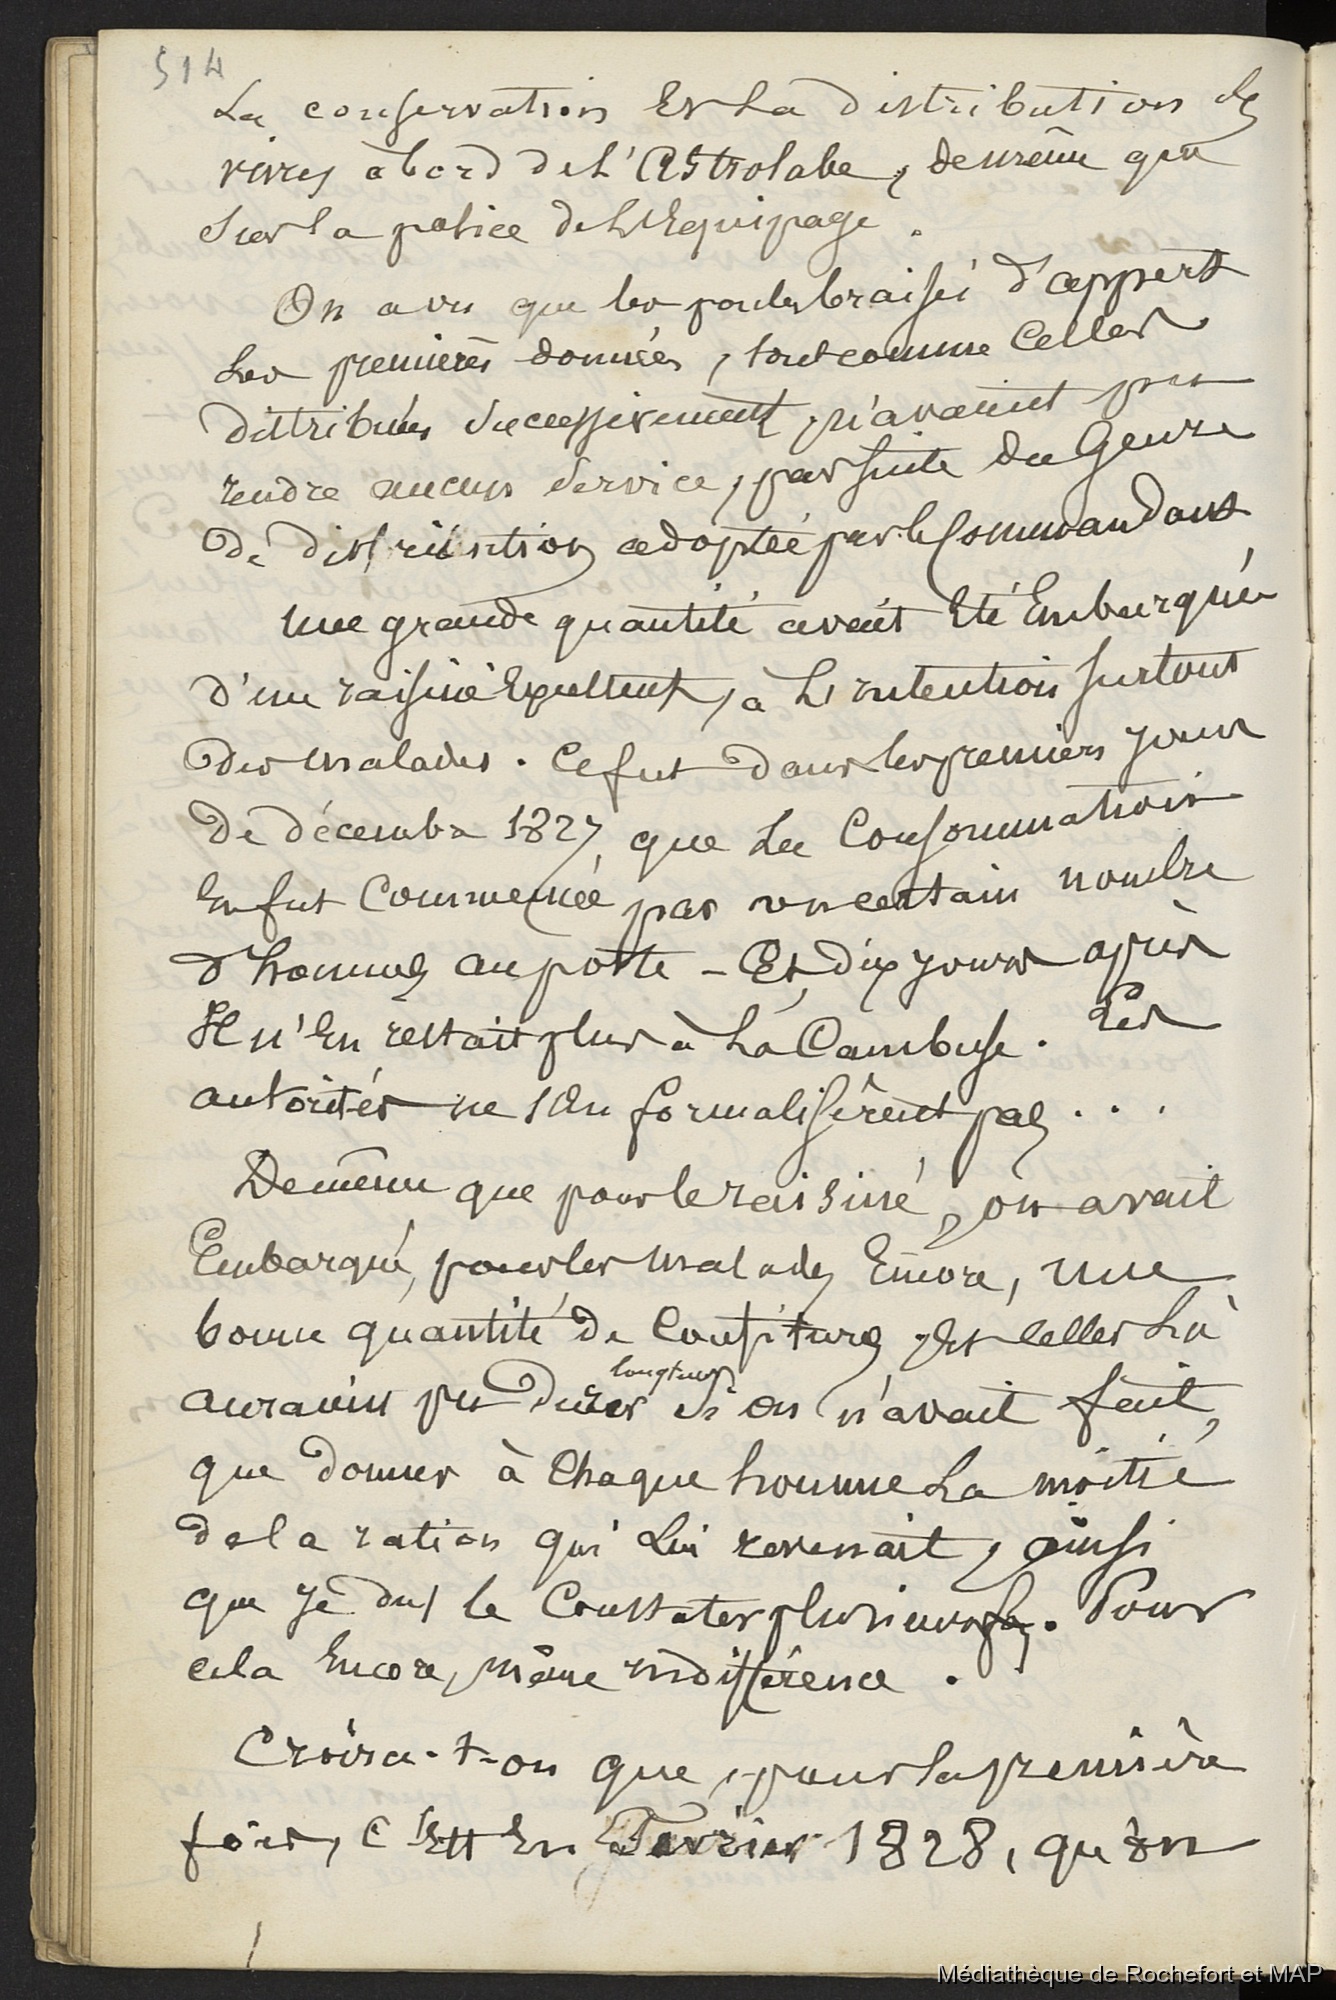 514
La conservation Et La distribution des
vivres à bord de L'Astrolabe, de même que
Sur la police de L'Equipage.
On a vu que les poules braisées d'appert
Les premières données, tout comme Celles
distribuées Successivement, n'avaient pu
rendre aucun Service, par suite du Genre
De distribution adoptée par le Commandant
Une grande quantité avait Eté Embarquée
d'un raisiné Excellent, à L'intention surtout
Des malades. Ce fut dans les premiers jours
De décembre 1827, que La Consommation
En fut Commencée par un certain nombre
d'hommes au poste - Et, dix jours après
Il n'En restait plus à La Cambuse. Les
autorités ne s'En formalisèrent pas...
De même que pour le raisiné, on avait
Embarqué, pour les malades Encore, une
bonne quantité de Confitures, Et Celles Là
auraient pu Durer longtemps si on n'avait fait,
que donner à Chaque homme La moitié
de la ration qui Lui revenait, ainsi
que je dus le Constater plusieurs fois. Pour
cela Encore, même indifférence.
Croira-t-on que, pour la première
fois, C'Est En Février 1828, qu'on
Médiathèque de Rochefort et MAP